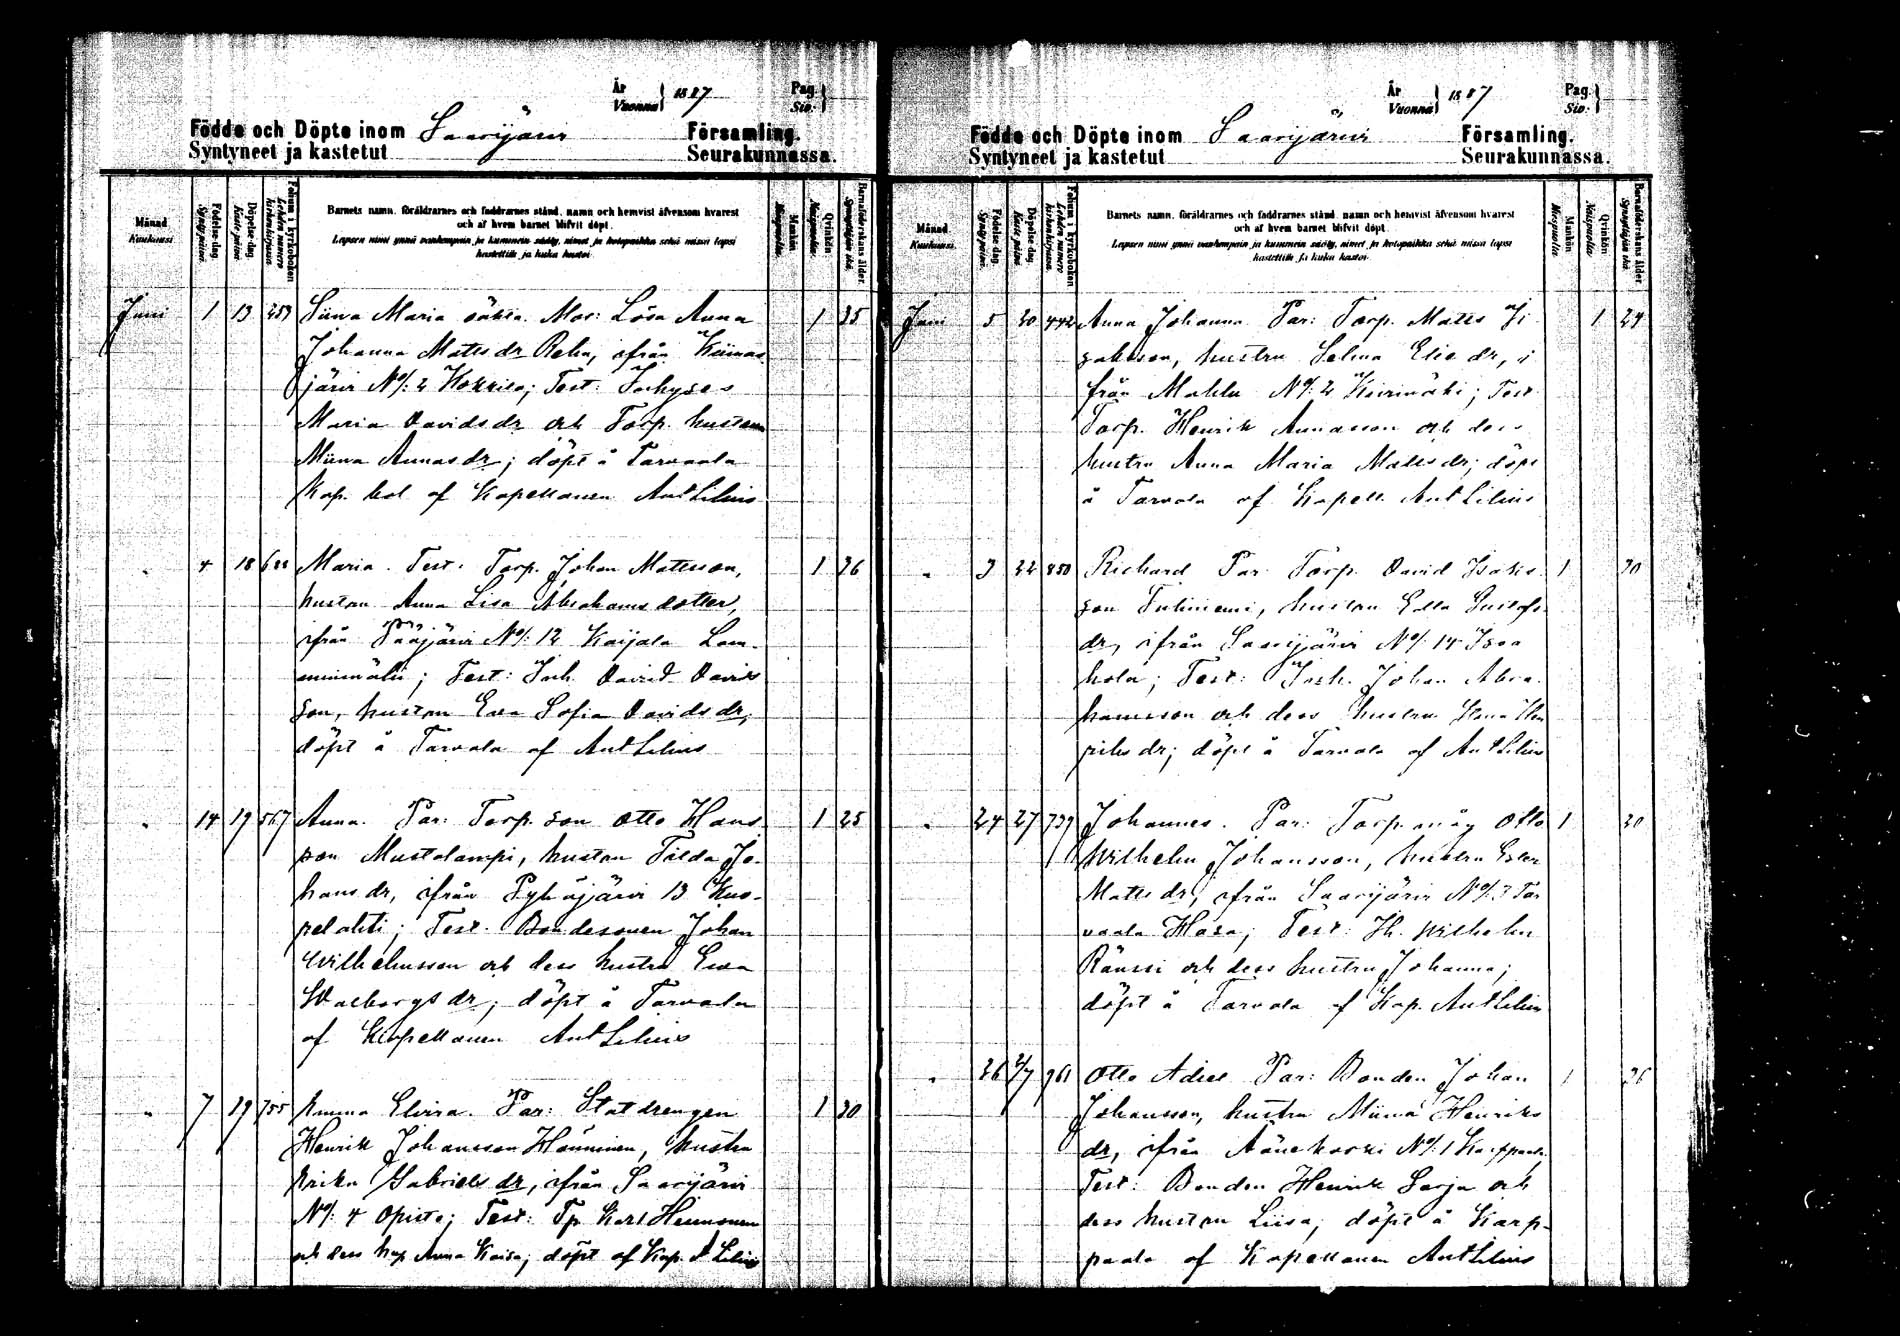 År
Vuonna } 1887
Pag.
Siv. }
Födde och Döpte inom Saarijärvi Församling.
Syntyneet ja kastetut Seurakunnassa.
Månad
Kuukausi
Födelse-dag.
Syntymäpäivä.
Döpelse-dag.
Kaste-päivä.
Folium i kyrkoboken
Lehden numero kirkonkirjassa.
Barnets namn, föräldrarnes och faddrarnes stånd, namn och hemvist äfvensom hvarest
och af hvem barnet blifvit döpt.
Lapsen nimi ynnä vanhempain ja kummein sääty, nimet ja kotopaikka sekä missä lapsi
kastettiin ja kuka kastoi.
Mankön
Miespuolia.
Qvinkön
Naispuolia.
Barnaföderskans ålder.
Synnyttäjän ikä.
Juni 1 13 253 Siina Maria oäkta. Mor: Lösa Anna 1 35
Johanna Matts dr Rehn, ifrån Kiimas
järvi No/: 2 Kokkila; Test: Inhyses
Maria Davids dr och Torp. hustrun
Miina Annas dr; döpt å Tarvaala
Kap. bol af Kapellanen Ant Lilius
" 4 18 622 Maria. Test: Torp. Johan Mattsson, 1 36
hustru Anna Lisa Abrahams dotter,
ifrån Pääjärvi No/: 12 Kaijala Lam-
minmäki; Test: Inh. David Davids
son, hustru Eva Sofia Davids dr;
döpt å Tarvala af Ant Lilius
" 14 19 567 Anna. Par: Torp. son Otto Hans 1 25
son Mustalampi, hustru Tilda Jo-
hans dr, ifrån Pyhäjärvi 13 Kuo-
pelahti; Test: Bondesonen Johan
Wilhelmsson och dess hustru Eva
Walborgs dr; döpt å Tarvaala
af Kapellanen Ant Lilius
" 7 19 755 Emma Elvira. Par: Statdrengen 1 30
Henrik Johansson Hänninen, hustru
Erika Gabriels dr, ifrån Saarijärvi
No/: 4 Opisto; Test: Tp. Karl Heimonen
och dess hu Anna Kaisa; döpt af Kap. A Lilius
År
Vuonna } 1887
Pag.
Siv. }
Födde och Döpte inom Saarijärvi Församling.
Syntyneet ja kastetut Seurakunnassa.
Månad
Kuukausi.
Födelse-dag.
Syntymäpäivä.
Döpelse-dag.
Kaste-päivä.
Folium i kyrkoboken
Lehden numero kirkonkirjassa.
Barnets namn, föräldrarnes och faddrarnes stånd, namn och hemvist äfvensom hvarest
och af hvem barnet blifvit döpt.
Lapsen nimi ynnä vanhempain ja kummein sääty, nimet ja kotopaikka sekä missä lapsi
kastettiin ja kuka kastoi.
Mankön
Miespuolia.
Qvinkön
Naispuolia.
Barnaföderskans ålder.
Synnyttäjän ikä.
Juni 5 20 442 Anna Johanna. Par: Torp. Matts
hustru Selma Elie dr, i
från Mahlu No/: 2 Test
Torp. Henrik Annasson och dess
hustru Anna Maria Matts dr; döpt
å Tarvala af Kapell. Ant Lilius
" 3 22 850 Richard Par: Torp. David Isaks- 1 30
son Tuliniemi, hustru Edla Gustafs
dr, ifrån Saarijärvi No/: 14 Isoa
hola; Test: Inh. Johan Abra
hamsson och dess hustru Stina
dr; döpt å Tarvala af Ant Lilius
" 24 27 739 Johannes. Par: Torp. måg Otto 1 20
Wilhelm Johansson, hustru Ester
Matts dr, ifrån Saarijärvi No/: 3 Tar
vaala Hasa; Test: Ih. Wilhelm
Ränssi och dess hustru Johanna;
döpt å Tarvala af Kap. Ant Lilius
" 26 2/7 961 Otto Adiel Par: Bonden Johan 1 26
Johansson, hustru Miina Henriks
dr, ifrån Äänekoski No/: 1 Karppala
Test: Bonden Henrik Sarja och
dess hustru Liisa; döpt å Karp-
paala af Kapellanen Ant Lilius